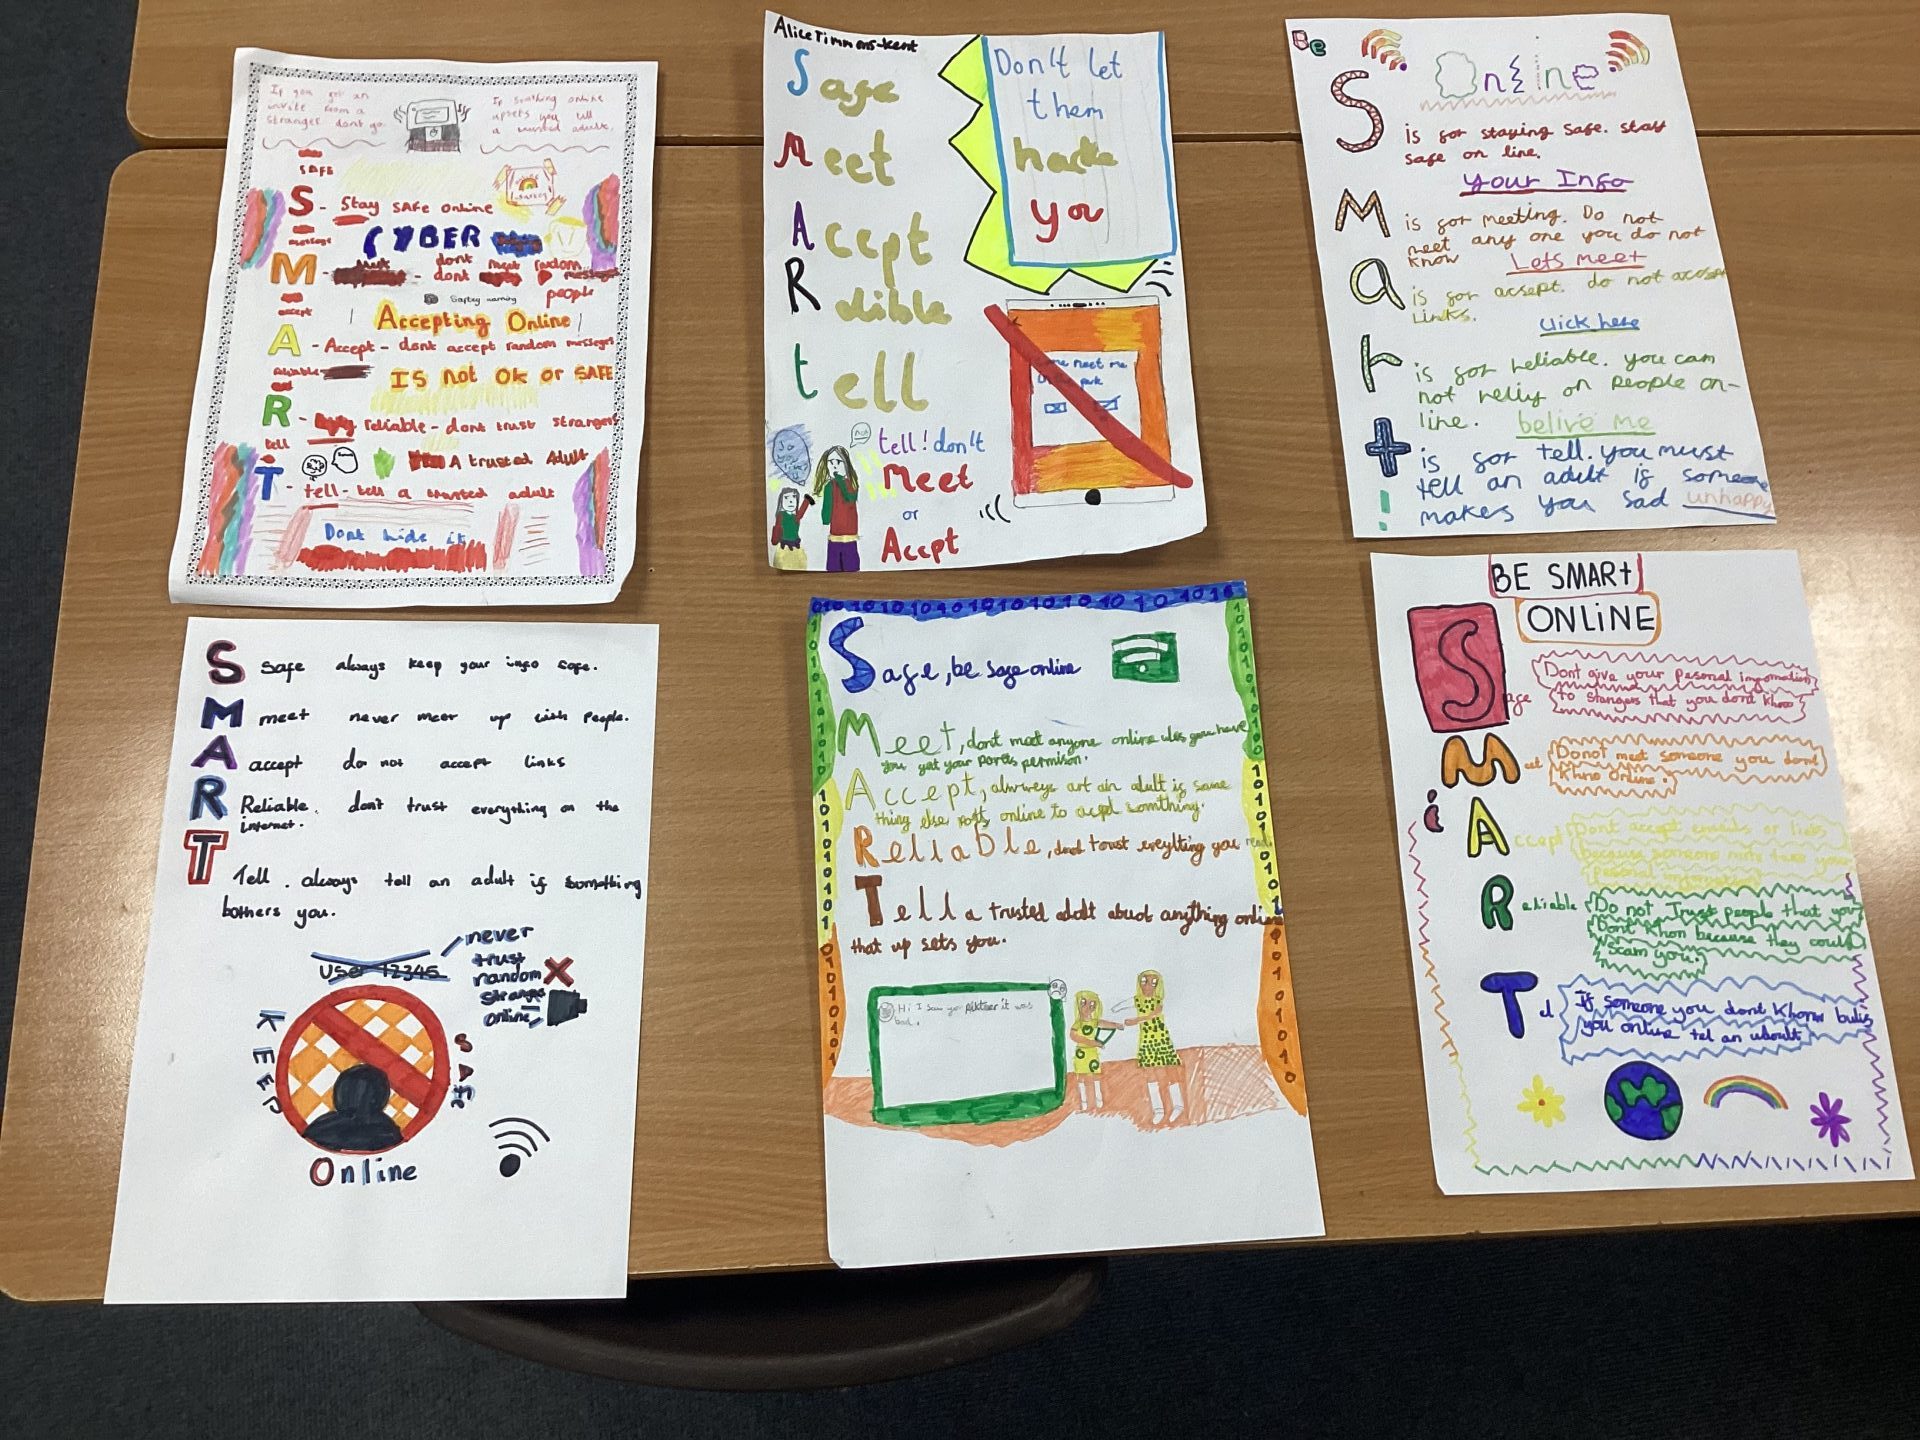 If you get an
invite from a
stranger dont go.
If somthing online
upsets you tell
a trusted adult.
SAFE
S - Stay SAFE online
message
CYBER
dont
M - dont meet random
people
Saftey warning
accept
Accepting Online
A - Accept - dont accept random messeges
reliable
IS not Ok or SAFE
R - reliable - dont trust strangers
tell
A trusted Adult
T - tell - tell a trusted adult
Dont hide it
Alice Timmons-Kent
Safe
Meet
Accpt
Relible
tell
Don't let
them
hack
you
me meet me
park
tell! don't
Meet
or
Accpt
Be
Online
S is for staying safe. stay
safe on line.
Your Info
M is for meeting. Do not
meet any one you do not
know
Lets meet
a is for accept. do not accept
Links.
Click here
r is for reliable. you can
not relly on people on-
line. belive me
t is for tell. you must
tell an adult if someone
makes you sad unhappy
!
S Safe always keep your info safe.
M meet never meet up with people.
A accept do not accept links
R Reliable. don't trust everything on the
internet.
T Tell. always tell an adult if something
bothers you.
User 12345
never
trust
random
online
KEEP
SAFE
Online
010101010101010101010101016
Safe, be safe online
Meet, dont meet anyone online ules you have
you get your parents permison.
Accept, always art an adult if some
thing else online to accpt somthing.
Reliable, dont troust ereything you read
Tell a trusted adalt abuot anything online
that up sets you.
Hi I saw your pikture it was
bad.
BE SMARt
ONLiNE
Safe
Dont give your pesonal imformation
to stangers that you dont Khno
Meet
Do not meet someone you dont
Khno Online.
i
Accept
Dont accept emails or links
because someone mite take your
pesonal information
Reliable
Do not Trust people that you
Dont Khon because they could
scam you.
Tel
If someone you dont Khonw bulis
you online tel an uboult